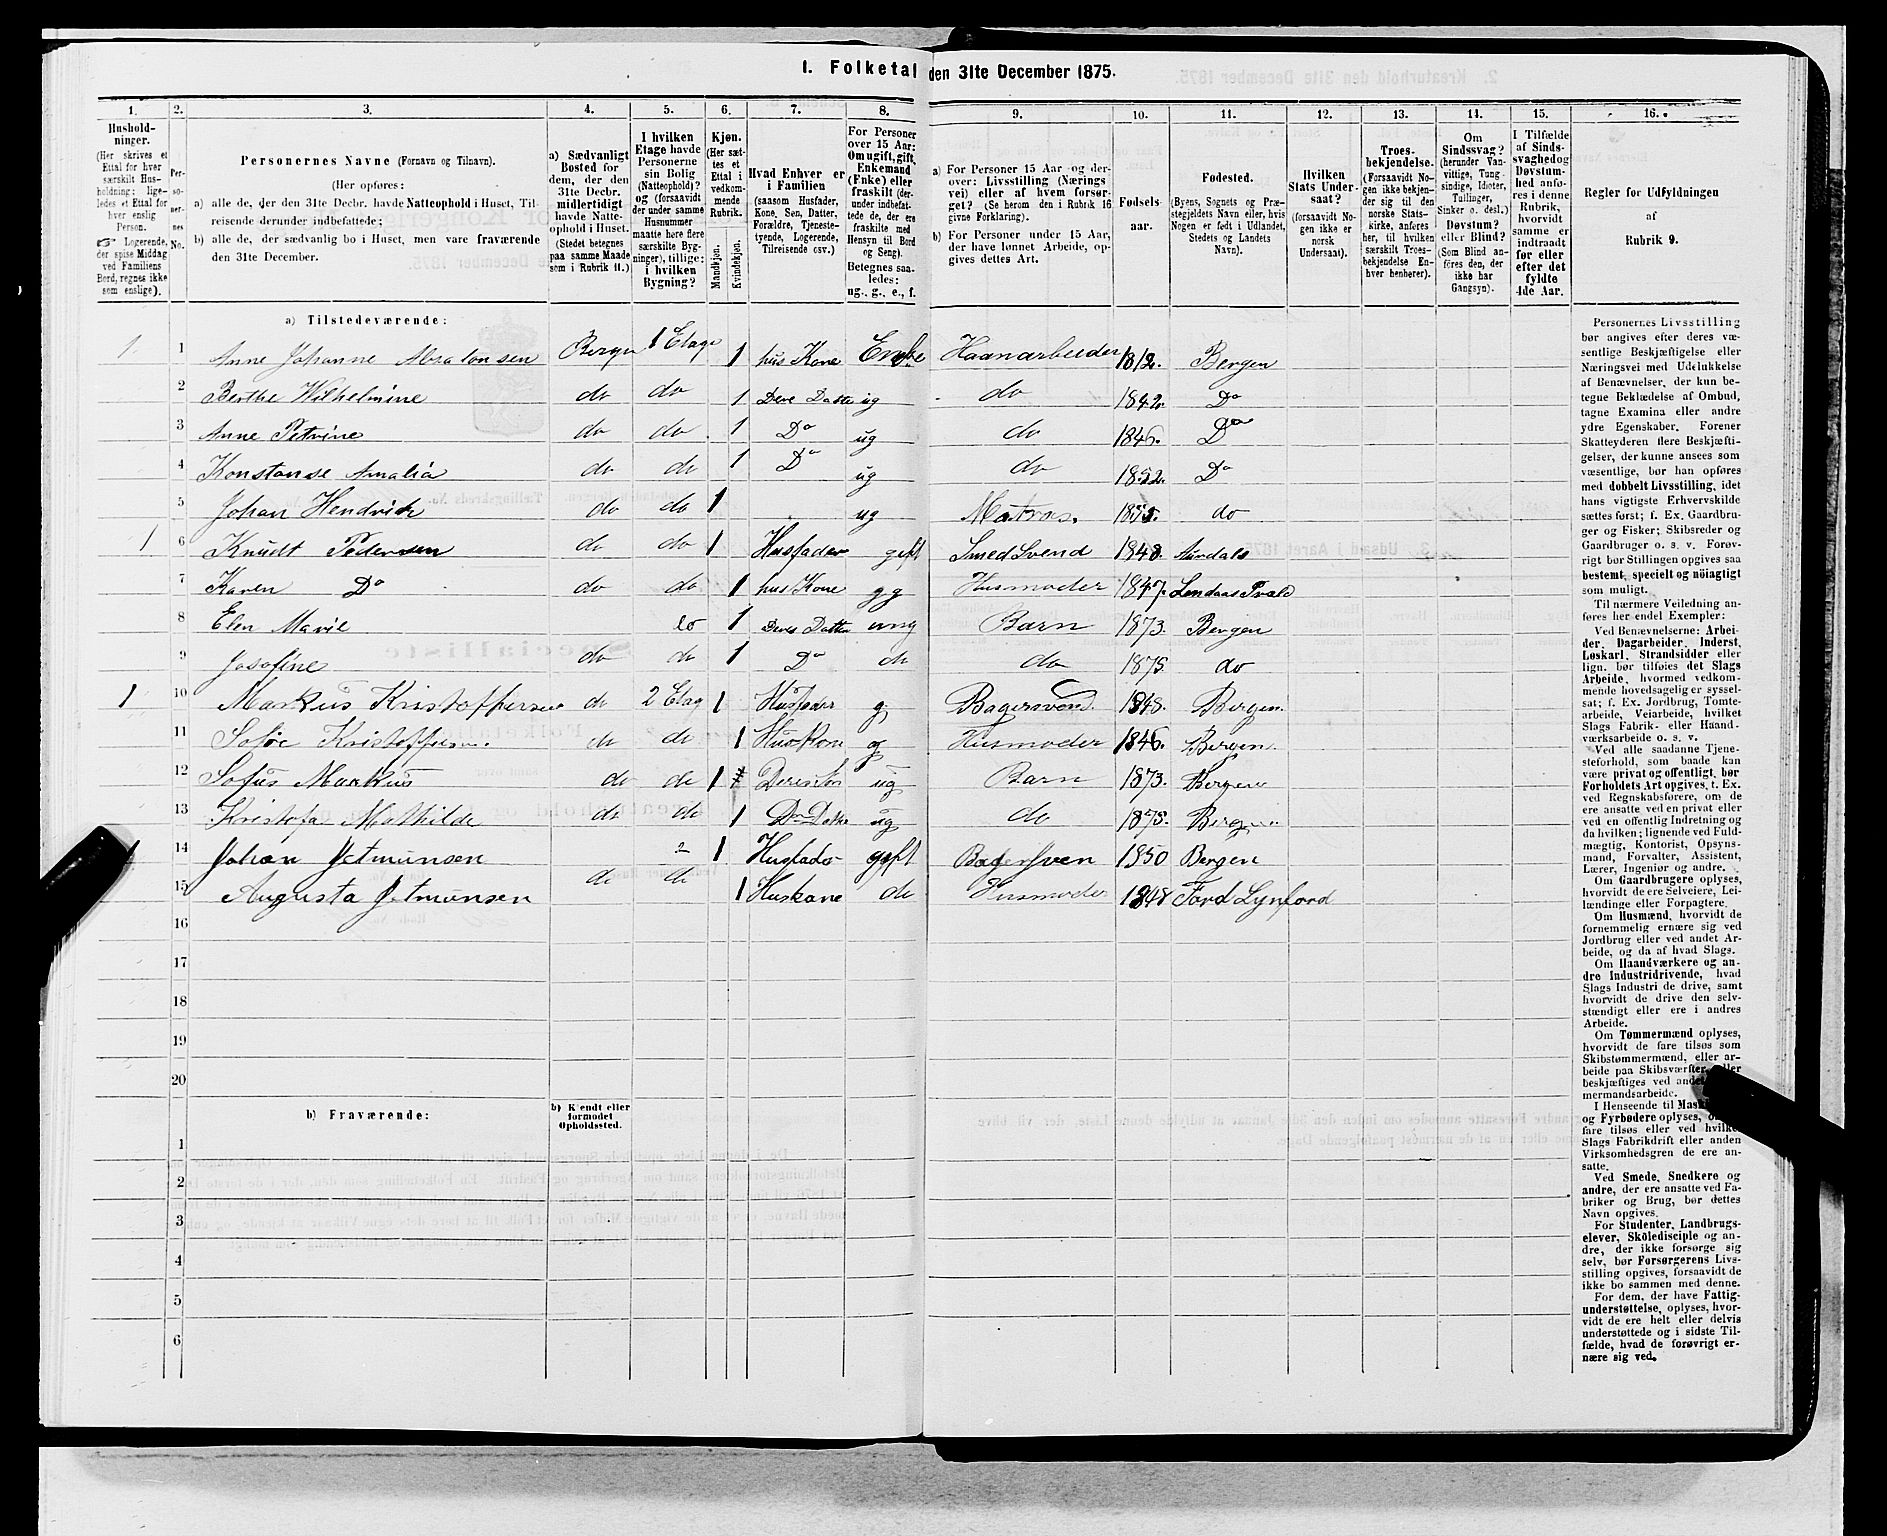 1. Folketal den 31te December 1875.
1. 2. 3. 4. 5. 6. 7. 8. 9. 10. 11. 12. 13. 14. 15. 16.
Hushold-
ninger.
(Her skrives et
Ettal for hver
særskilt Hus-
holdning; lige-
ledes et Ettal for
hver enslig
Person.
Logerende,
der spise Middag
ved Familiens
Bord, regnes ikke
som enslige).
Per-
so-
ner-
nes
No.
Personernes Navne (Fornavn og Tilnavn).
(Her opføres:
a) alle de, der den 31te Decbr. havde Natteophold i Huset, Til-
reisende derunder indbefattede;
b) alle de, der sædvanlig bo i Huset, men vare fraværende
den 31te December.
a) Sædvanligt
Bosted for
dem, der den
31te Decbr.
midlertidigt
havde Natte-
ophold i Huset.
(Stedet betegnes
paa samme Maade
som i Rubrik 11.)
I hvilken
Etage havde
Personerne
sin Bolig
(Natteophold)?
og (forsaavidt
der under samme
Husnummer
maatte høre flere
særskilte Byg-
ninger), tillige:
i hvilken
Bygning?
Kjøn.
(Her sæt-
tes et
Ettal i
vedkom-
mende
Rubrik.
Mandkjøn.
Kvindekjøn.
Hvad Enhver er
i Familien
(saasom Husfader,
Kone, Søn, Datter,
Forældre, Tjeneste-
tyende, Logerende,
Tilreisende osv.)
For Personer
over 15 Aar:
Om ugift, gift,
Enkemand
(Enke) eller
fraskilt (der-
under indbefat-
tede de, der ere
fraskilte med
Hensyn til Bord
og Seng).
Betegnes saa-
ledes:
ug., g., e., f.
a) For Personer 15 Aar og der-
over: Livsstilling (Nærings
vei) eller af hvem forsør-
get? (Se herom den i Rubrik 16
givne Forklaring).
b) For Personer under 15 Aar,
der have lønnet Arbeide, op-
gives dettes Art.
Fødsels-
aar.
Fødested.
(Byens, Sognets og Præ-
stegjeldets Navn eller, hvis
Nogen er født i Udlandet,
Stedets og Landets
Navn).
Hvilken
Stats Under-
saat?
(forsaavidt No-
gen ikke er
norsk
Undersaat).
Troes-
bekjendelse.
(Forsaavidt No-
gen ikke bekjen-
der sig til den
norske Stats-
kirke, anføres
her, til hvilken
særskilt Troes-
bekjendelse En-
hver henhører).
Om
Sindssvag?
(herunder Van-
vittige, Tung-
sindige, Idioter,
Tullinger,
Sinker o. desl.)
Døvstum?
eller Blind?
(Som Blind an-
føres den, der
ikke har
Gangsyn).
I Tilfælde
af Sinds-
svaghed og
Døvstum-
hed anfø-
res i denne
Rubrik,
hvorvidt
samme er
indtraadt
før eller
efter det
fyldte
4de Aar.
Regler for Udfyldningen
af
Rubrik 9.
a) Tilstedeværende:
1 1 Anne Johanne Absalonsen Bergen 1 Etage 1 hus Kone Enke Haanarbeider 1812. Bergen
2 Berthe Wilhelmine do do 1 Dere Datter ug do 1842. Do
3 Anne Petrine do do 1 Do ug do 1846. Do
4 Konstanse Amalia do do 1 Do ug do 1852. Do
5 Johan Hendrik do do 1 ug Matros. 1855. do
1 6 Knudt Pedersen do do 1 Husfader gift Smed Svend 1848. Aurdals
7 Karen Do do do 1 hus Kone gg Husmoder 1847.
8 Elen Marie do 1 Deres Datter ung Barn 1873. Bergen
9 Josofine do do 1 Do do do 1875. do
1 10 Markus Kristoffersen do 2 Etag 1 Husfader g Bagersvend. 1848. Bergen.
11 Sofie Kristoffersen do do 1 Huskone g Husmoder 1846. Bergen.
12 Sofus Markus do do 1 Deres søn ug Barn 1873. Bergen
13 Kristofa Mathilde do do 1 Do Datter ug do 1875. Bergen.
1 14 Johan Jetmunsen 2 1 Husfader gift Bager Sven 1850 Bergen
15 Augusta Jetmunsen do do 1 Huskone do Husmoder 1848 Ford Lynford
16
17
18
19
20
b) Fraværende:
b) Kjendt eller
formodet
Opholdssted.
1
2
3
4
5
6
Personernes Livsstilling
bør angives efter deres væ-
sentlige Beskjæftigelse eller
Næringsvei med Udelukkelse
af Benævnelser, der kun be-
tegne Beklædelse af Ombud,
tagne Examina eller andre
ydre Egenskaber. Forener
Skatteyderen flere Beskjæfti-
gelser, der kunne ansees som
væsentlige, bør han opføres
med dobbelt Livsstilling, idet
hans vigtigste Erhvervskilde
sættes først; f. Ex. Gaardbru-
ger og Fisker; Skibsreder og
Gaardbruger o. s. v. Forøv-
rigt bør Stillingen opgives saa
bestemt, specielt og nöiagtigt
som muligt.
Til nærmere Veiledning an-
føres her endel Exempler:
Ved Benævnelserne: Arbei-
der, Dagarbeider, Inderst,
Løskarl, Strandsidder eller
lign. bør tilføies det Slags
Arbeide, hvormed vedkom-
mende hovedsagelig er syssel-
sat; f. Ex. Jordbrug, Tomte-
arbeide, Veiarbeide, hvilket
Slags Fabrik- eller Haand-
værksarbeide o. s. v.
Ved alle saadanne Tjene-
steforhold, som baade kan
være privat og offentligt, bør
Forholdets Art opgives, t. Ex.
ved Regnskabsførere, om de
ere ansatte ved en privat eller
ved en offentlig Indretning og
da hvilken; lignende ved Fuld-
mægtig, Kontorist, Opsyns-
mand, Forvalter, Assistent,
Lærer, Ingeniør og andre.
Om Gaardbrugere oplyses,
hvorvidt de ere Selveiere, Lei-
lændinge eller Forpagtere.
Om Husmænd, hvorvidt de
fornemmelig ernære sig ved
Jordbrug eller ved andet Ar-
beide, og da af hvad Slags.
Om Haandværkere og an-
dre Industridrivende, hvad
Slags Industri de drive, samt
hvorvidt de drive den selv-
stændigt eller ere i andres
Arbeide.
Om Tømmermænd oplyses,
hvorvidt de fare tilsøs som
Skibstømmermænd, eller ar-
beide paa Skibsværfter, eller
beskjæftiges ved andet
mermandsarbeide.
I Henseende til
og Fyrbødere oplyses,
fare tilsøs eller ved
Slags Fabrikdrift eller anden
Virksomhedsgren de ere an-
satte.
Ved Smede, Snedkere og
andre, der ere ansatte ved Fa-
briker og Brug, bør dettes
Navn opgives.
For Studenter, Landbrugs-
elever, Skoledisciple og an-
dre, der ikke forsørge sig
selv, bør Forsørgerens Livs-
stilling opgives, forsaavidt de
ikke bo sammen med denne.
For dem, der have Fattig-
understøttelse, oplyses, hvor-
vidt de ere helt eller delvis
understøttede og i sidste Til-
fælde, hvad de forøvrigt er-
nære sig ved.